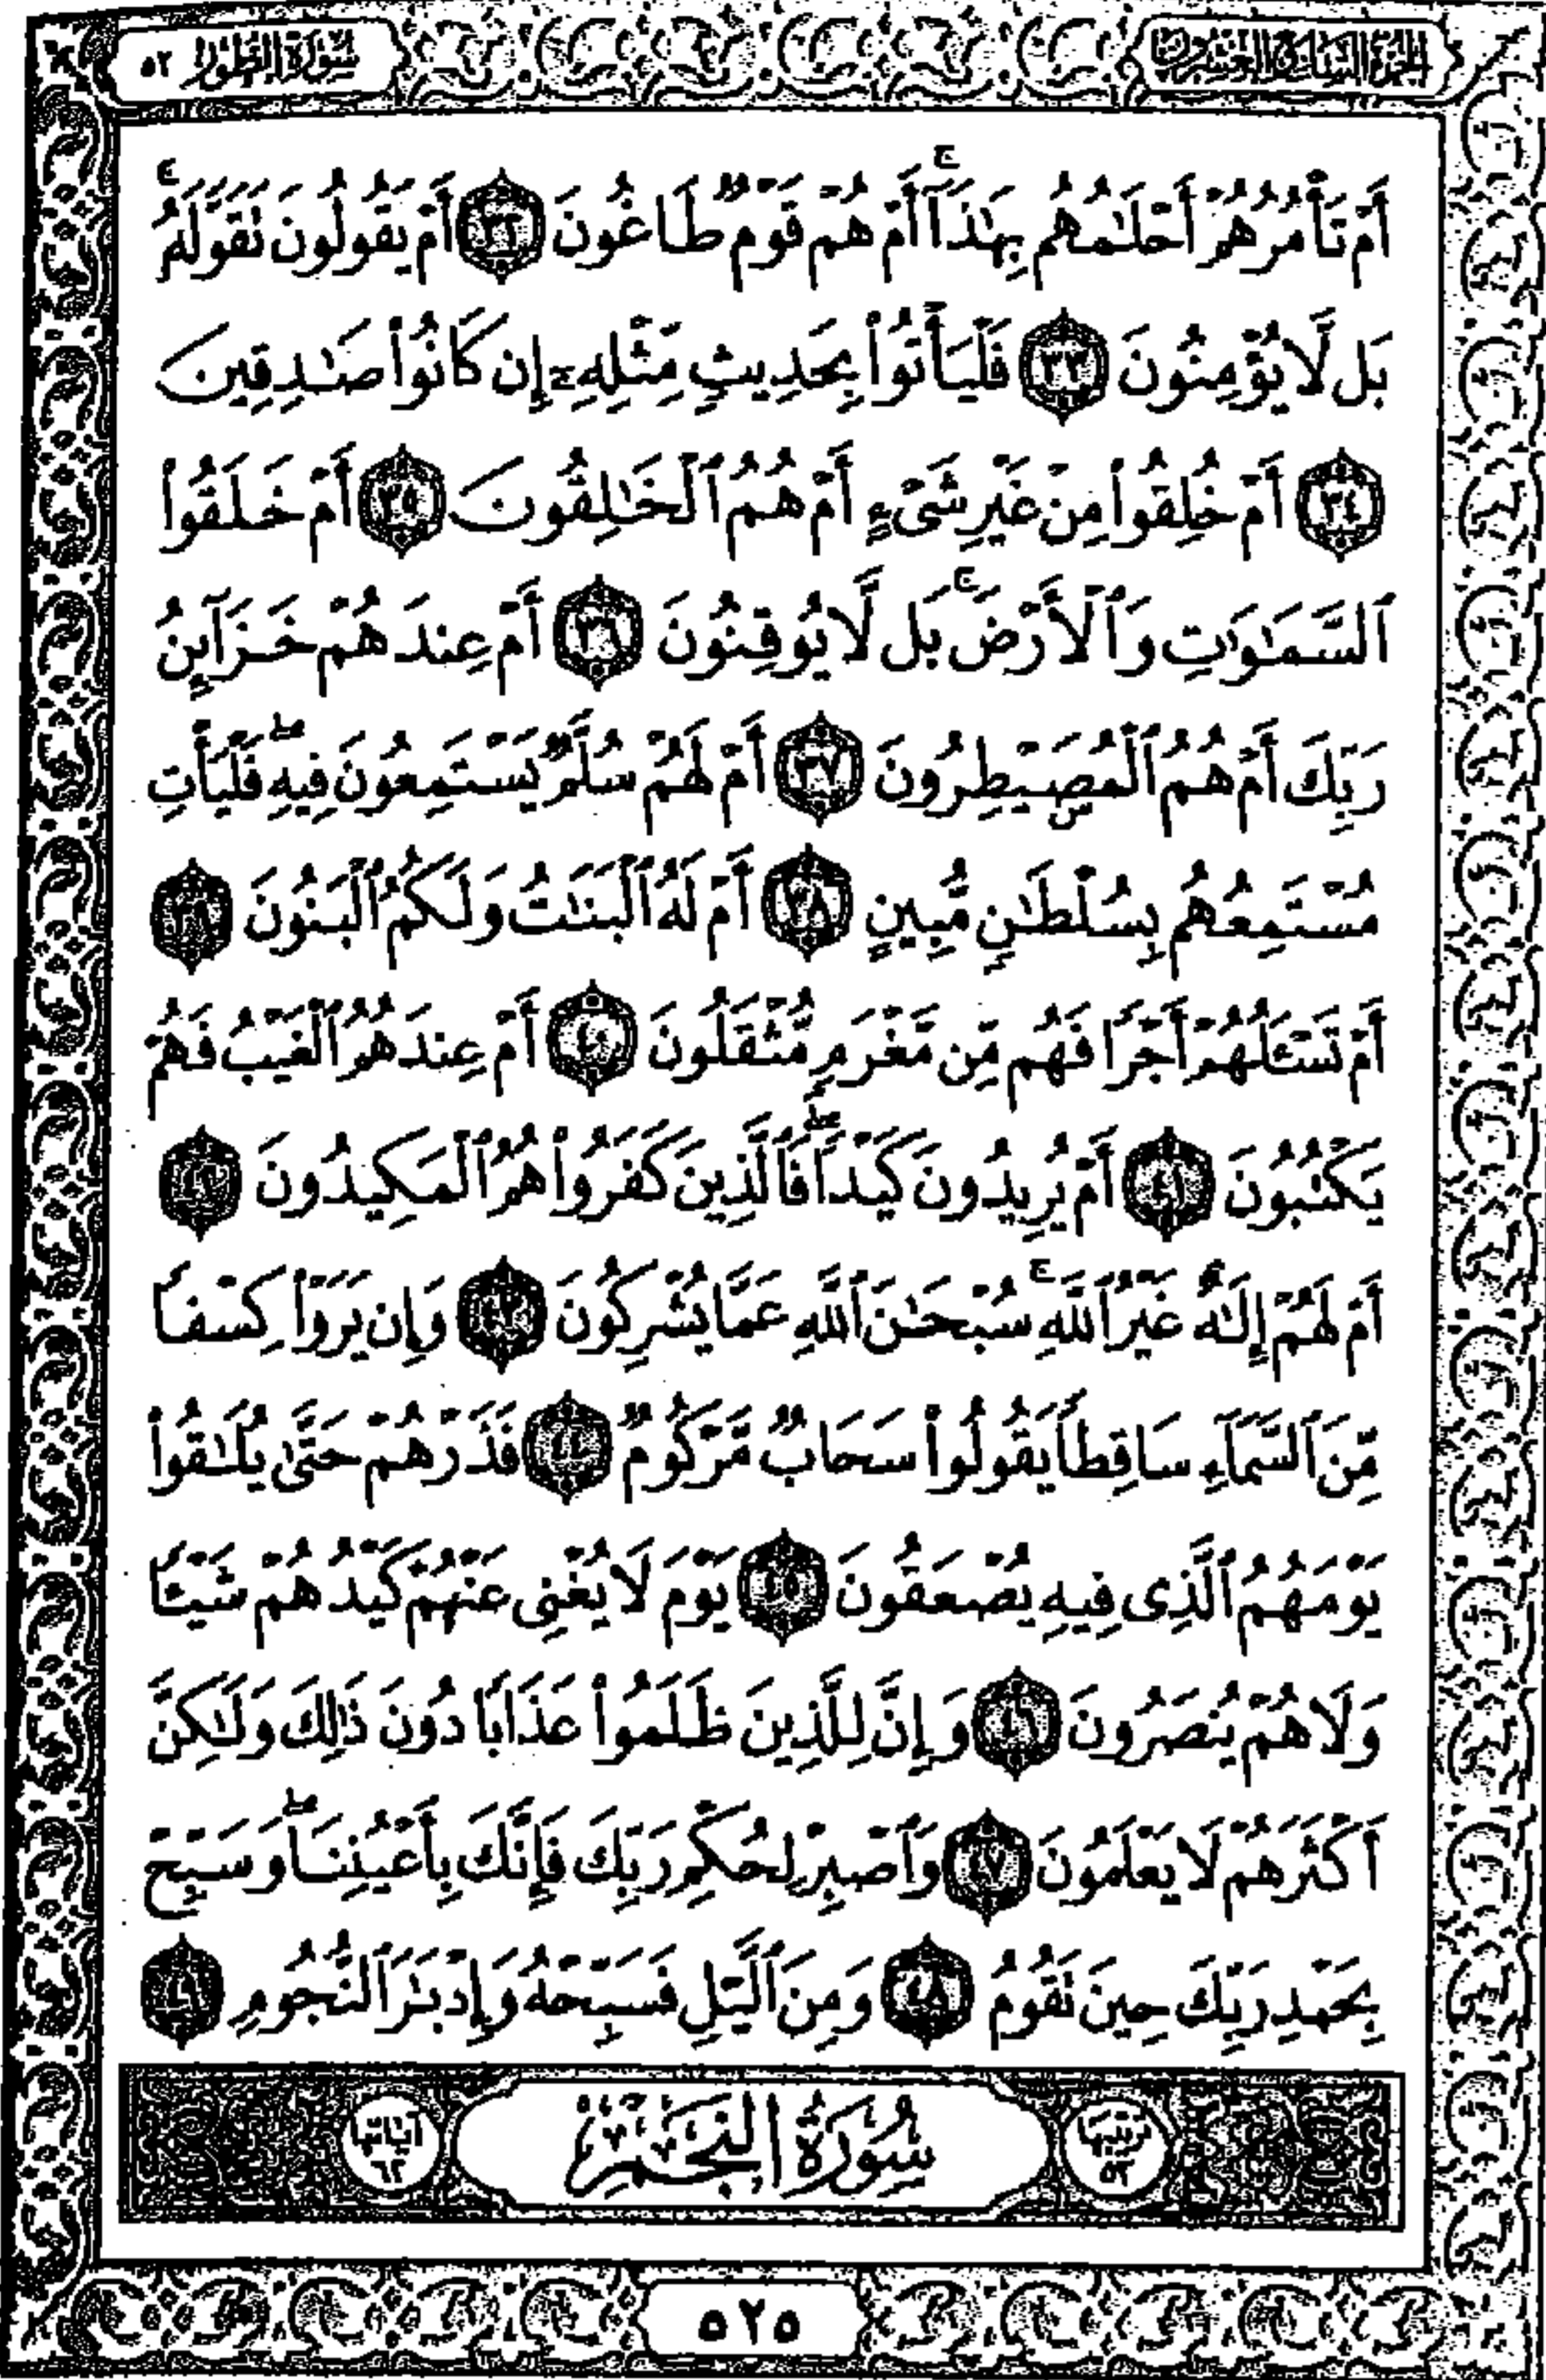 الجزء السابع والعشرون
سورة الطور ٥٢
أَمْ تَأْمُرُهُمْ أَحْلَٰمُهُم بِهَٰذَآ ۚ أَمْ هُمْ قَوْمٌ طَاغُونَ ٣٢ أَمْ يَقُولُونَ تَقَوَّلَهُۥ ۚ
بَل لَّا يُؤْمِنُونَ ٣٣ فَلْيَأْتُوا۟ بِحَدِيثٍ مِّثْلِهِۦٓ إِن كَانُوا۟ صَٰدِقِينَ
٣٤ أَمْ خُلِقُوا۟ مِنْ غَيْرِ شَىْءٍ أَمْ هُمُ ٱلْخَٰلِقُونَ ٣٥ أَمْ خَلَقُوا۟
ٱلسَّمَٰوَٰتِ وَٱلْأَرْضَ ۚ بَل لَّا يُوقِنُونَ ٣٦ أَمْ عِندَهُمْ خَزَآئِنُ
رَبِّكَ أَمْ هُمُ ٱلْمُصَۣيْطِرُونَ ٣٧ أَمْ لَهُمْ سُلَّمٌ يَسْتَمِعُونَ فِيهِ ۖ فَلْيَأْتِ
مُسْتَمِعُهُم بِسُلْطَٰنٍ مُّبِينٍ ٣٨ أَمْ لَهُ ٱلْبَنَٰتُ وَلَكُمُ ٱلْبَنُونَ ٣٩
أَمْ تَسْـَٔلُهُمْ أَجْرًا فَهُم مِّن مَّغْرَمٍ مُّثْقَلُونَ ٤٠ أَمْ عِندَهُمُ ٱلْغَيْبُ فَهُمْ
يَكْتُبُونَ ٤١ أَمْ يُرِيدُونَ كَيْدًا ۖ فَٱلَّذِينَ كَفَرُوا۟ هُمُ ٱلْمَكِيدُونَ ٤٢
أَمْ لَهُمْ إِلَٰهٌ غَيْرُ ٱللَّهِ ۚ سُبْحَٰنَ ٱللَّهِ عَمَّا يُشْرِكُونَ ٤٣ وَإِن يَرَوْا۟ كِسْفًا
مِّنَ ٱلسَّمَآءِ سَاقِطًا يَقُولُوا۟ سَحَابٌ مَّرْكُومٌ ٤٤ فَذَرْهُمْ حَتَّىٰ يُلَٰقُوا۟
يَوْمَهُمُ ٱلَّذِى فِيهِ يُصْعَقُونَ ٤٥ يَوْمَ لَا يُغْنِى عَنْهُمْ كَيْدُهُمْ شَيْـًٔا
وَلَا هُمْ يُنصَرُونَ ٤٦ وَإِنَّ لِلَّذِينَ ظَلَمُوا۟ عَذَابًا دُونَ ذَٰلِكَ وَلَٰكِنَّ
أَكْثَرَهُمْ لَا يَعْلَمُونَ ٤٧ وَٱصْبِرْ لِحُكْمِ رَبِّكَ فَإِنَّكَ بِأَعْيُنِنَا ۖ وَسَبِّحْ
بِحَمْدِ رَبِّكَ حِينَ تَقُومُ ٤٨ وَمِنَ ٱلَّيْلِ فَسَبِّحْهُ وَإِدْبَٰرَ ٱلنُّجُومِ ٤٩
ترتيبها ٥٣ سُورَةُ ٱلنَّجْمِ آياتها ٦٢
٥٢٥